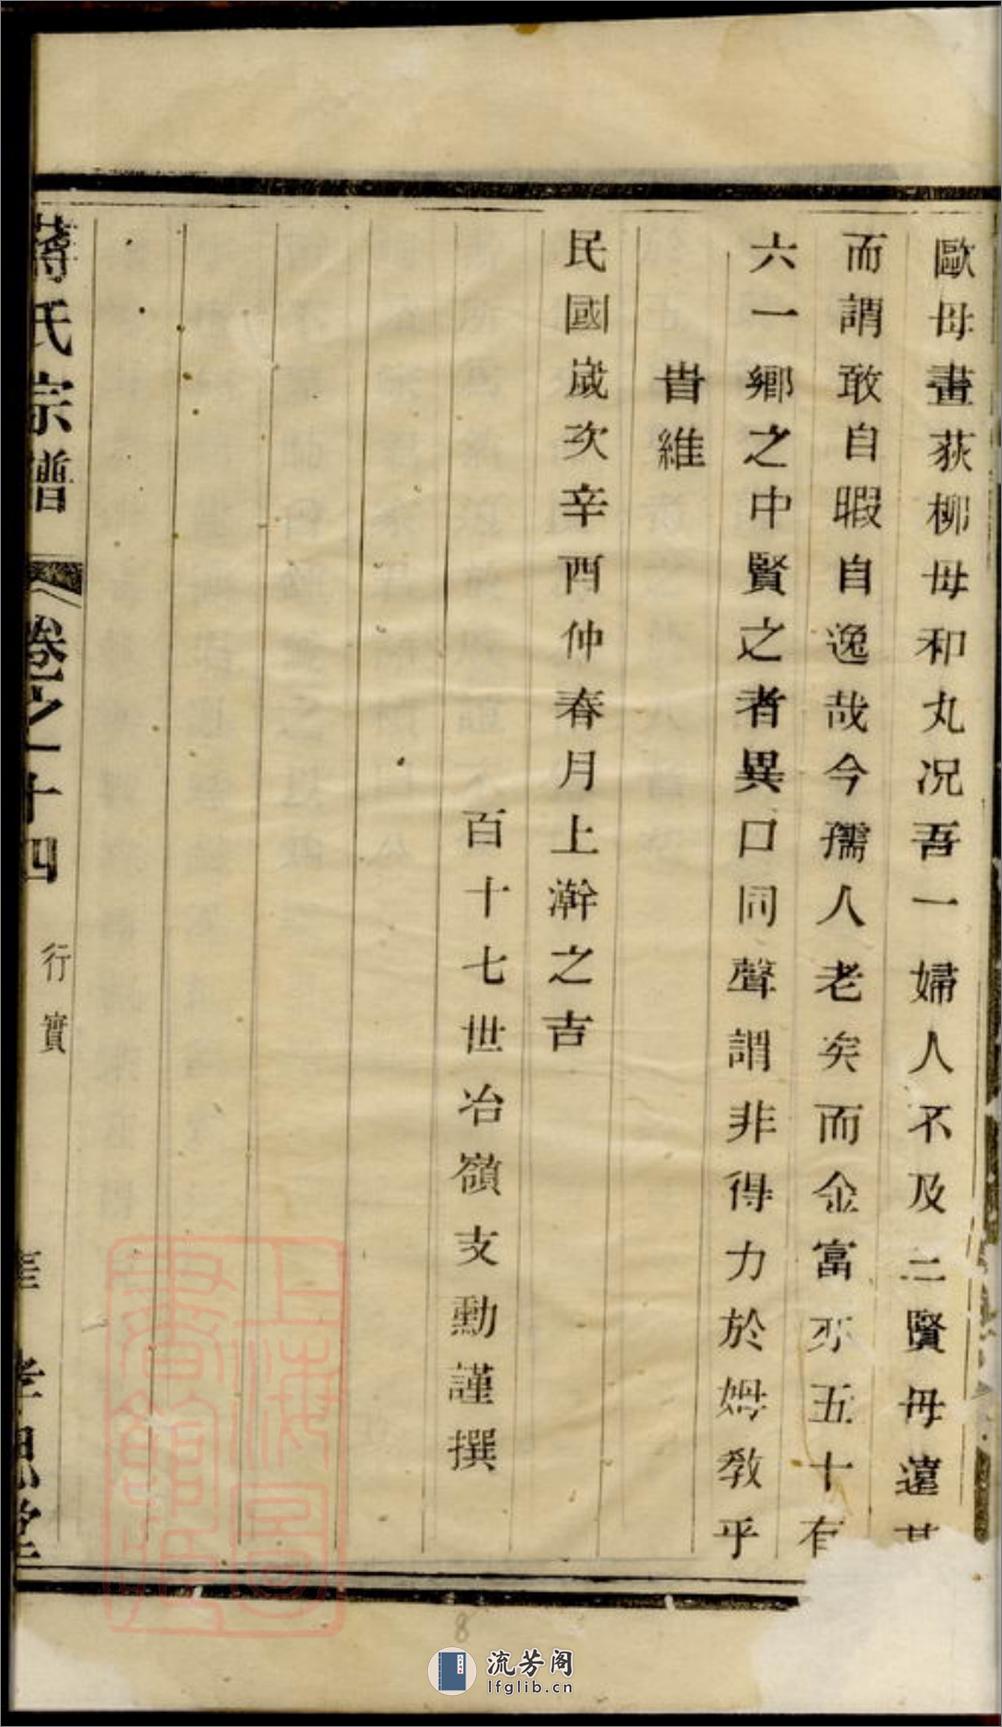 歐母畫荻柳母和丸况吾一婦人不及二賢母遠甚
而謂敢自暇自逸哉今孺人老矣而金富亦五十有
六一鄉之中賢之者異口同聲謂非得力於姆敎乎
旹維
民國歲次辛酉仲春月上澣之吉
百十七世冶嶺支勳謹撰
蔣氏宗譜
卷之十四
行實
孝思堂
上海圖書館藏
8
流芳阁
lfglib.cn